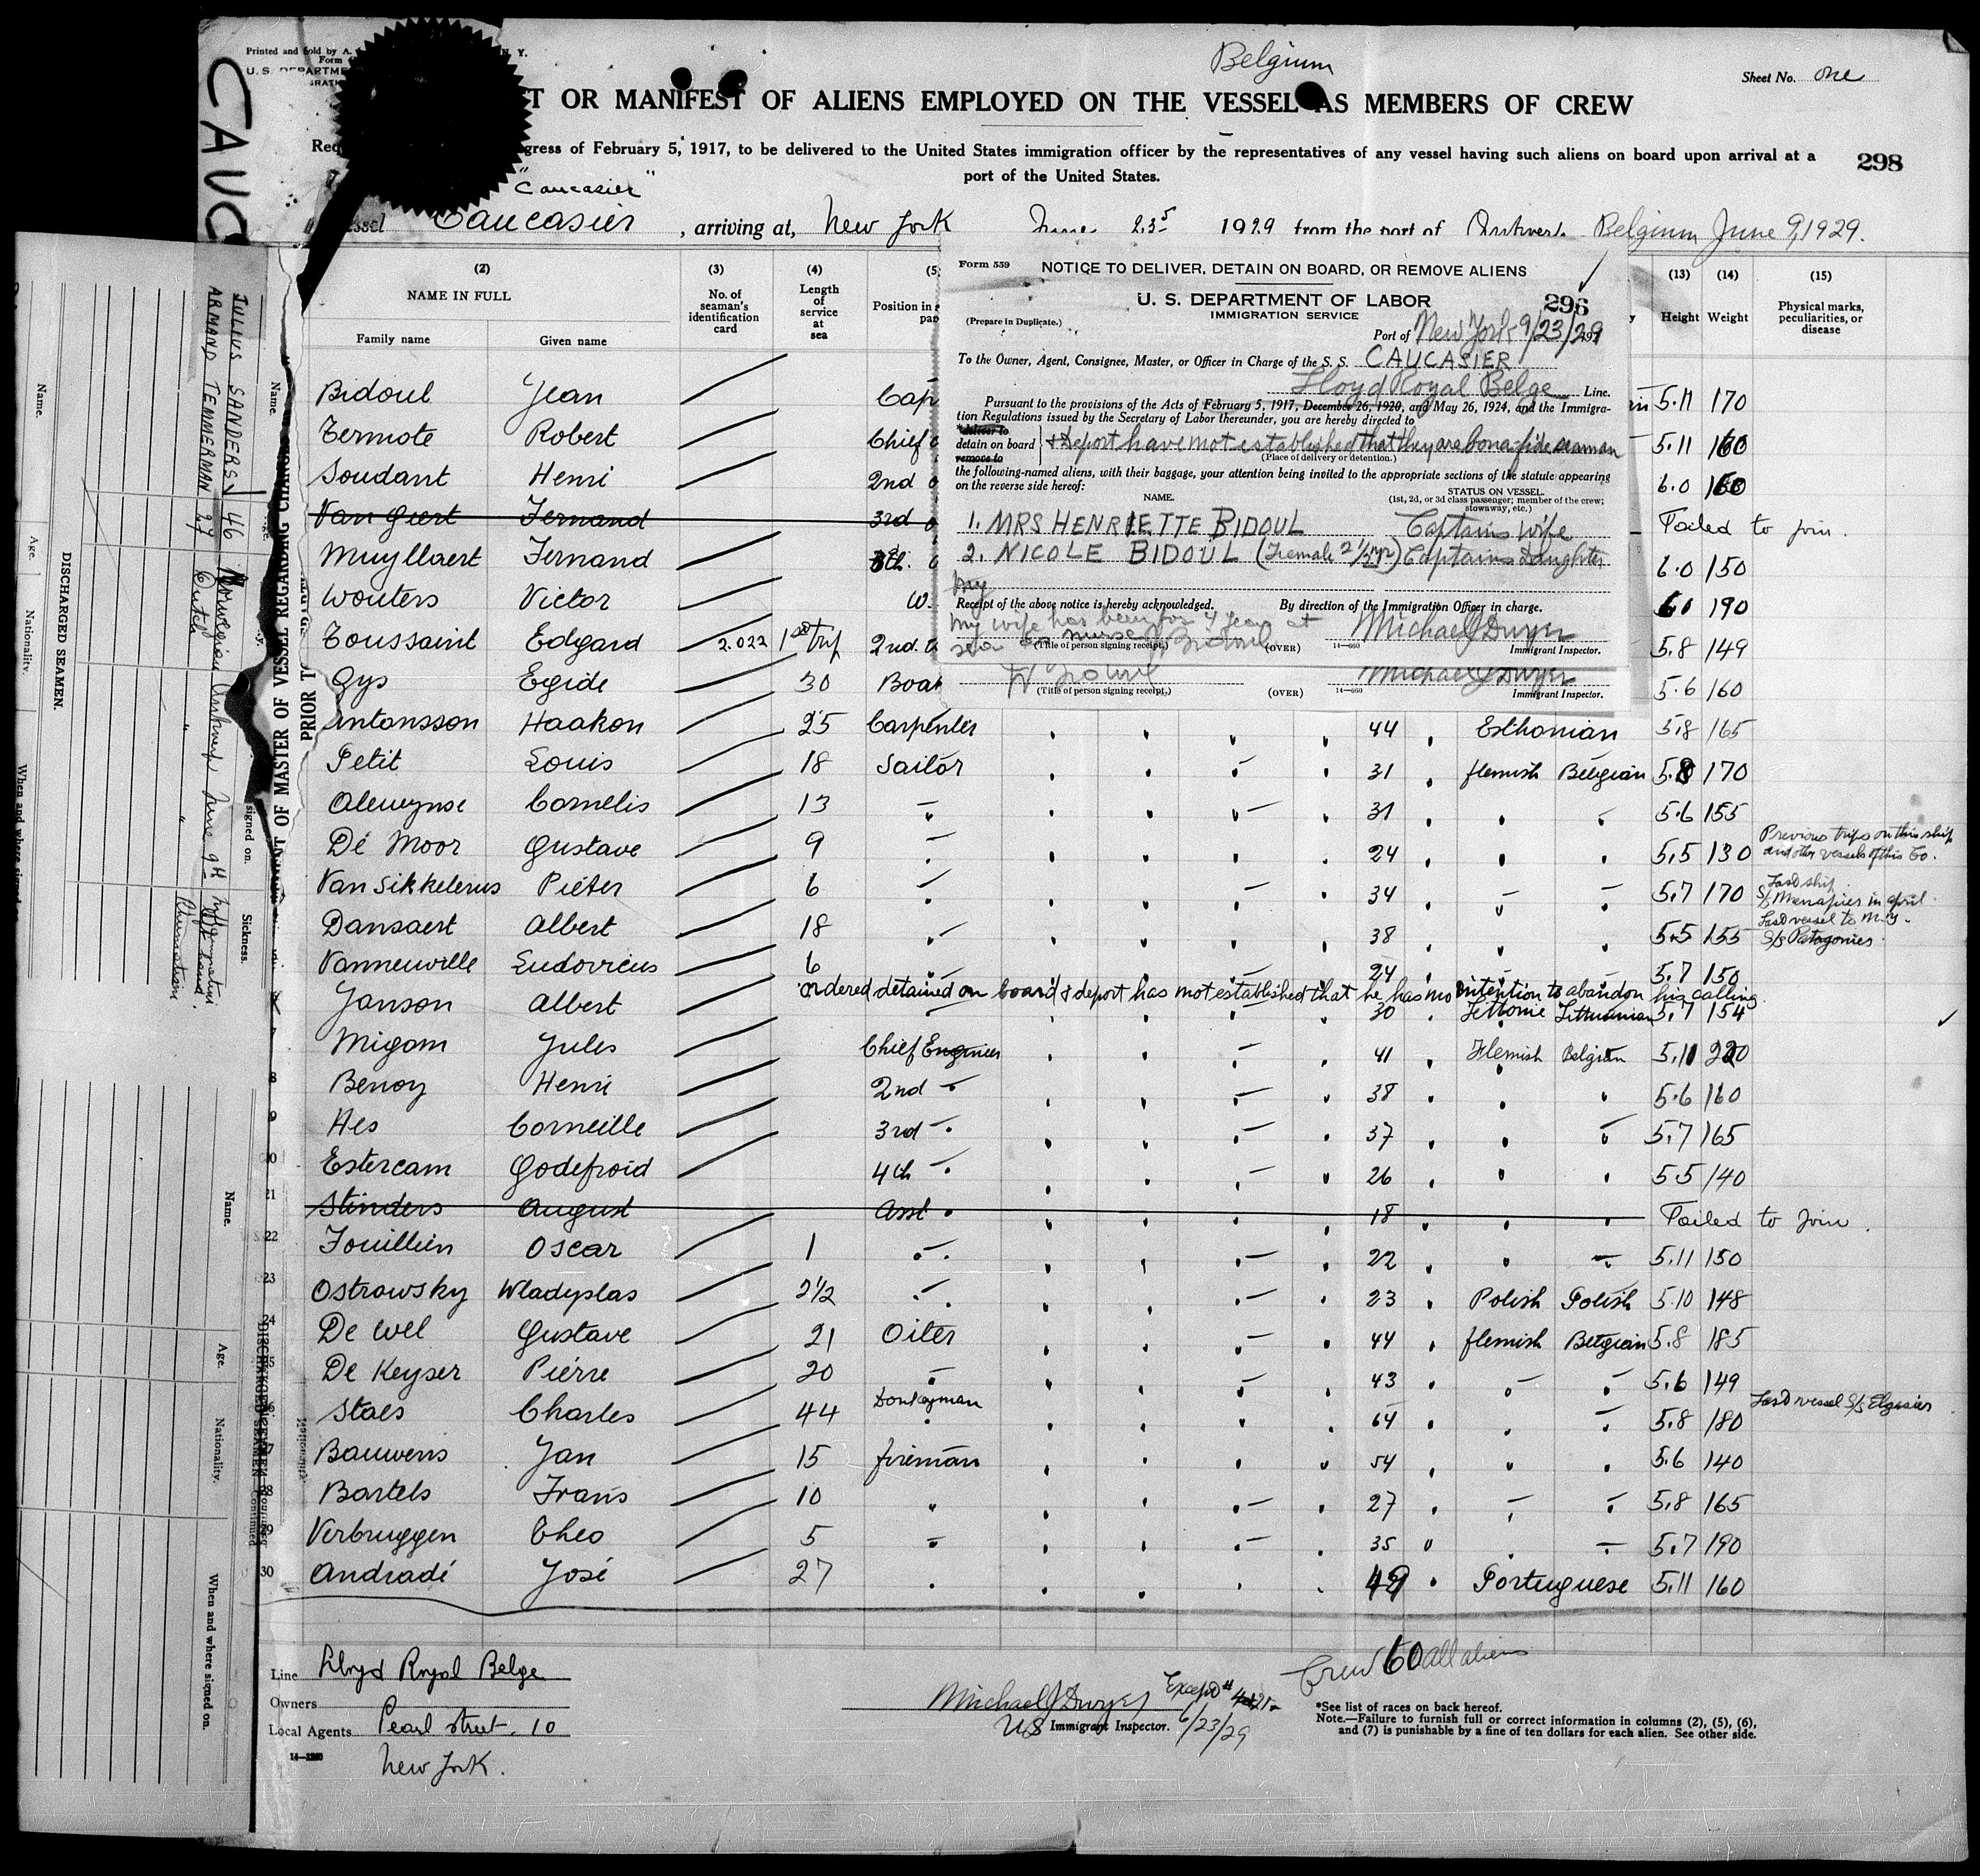 Belgium
Printed and Sold by A.
N. Y.
Form
U. S. DEPARTME
Sheet No. one
T OR MANIFEST OF ALIENS EMPLOYED ON THE VESSEL AS MEMBERS OF CREW
gress of February 5, 1917, to be delivered to the United States immigration officer by the representatives of any vessel having such aliens on board upon arrival at a
port of the United States.
298
CAUC
"Caucasier"
Caucasier, arriving at, New York June 23 1929 from the port of Antwerp Belgium June 9, 1929.
(2) (3) (4) (5 (13) (14) (15)
NAME IN FULL
Family name Given name
No. of seaman's identification card
Length of service at sea
Position in
Height Weight
Physical marks, peculiarities, or disease
Form 559 NOTICE TO DELIVER, DETAIN ON BOARD, OR REMOVE ALIENS
U. S. DEPARTMENT OF LABOR
IMMIGRATION SERVICE
296
(Prepare in Duplicate.)
Port of New York 9/23/29
To the Owner, Agent, Consignee, Master, or Officer in Charge of the S. S. CAUCASIER
Lloyd Royal Belge Line.
Pursuant to the provisions of the Acts of February 5, 1917, December 26, 1920, and May 26, 1924, and the Immigra-
tion Regulations issued by the Secretary of Labor thereunder, you are hereby directed to
deliver to
detain on board & deport have not established that they are bona-fide seaman
remove to
(Place of delivery or detention.)
the following-named aliens, with their baggage, your attention being invited to the appropriate sections of the statute appearing
on the reverse side hereof:
NAME. STATUS ON VESSEL.
(1st, 2d, or 3d class passenger; member of the crew;
stowaway, etc.)
1. MRS HENRIETTE BIDOUL Captains Wife
2. NICOLE BIDOUL (Female 2 1/2 yr) Captains Daughter
My
Receipt of the above notice is hereby acknowledged. By direction of the Immigration Officer in charge.
My wife has been for 4 years at
sea as nurse J Bidoul Michael J Dwyer
(Title of person signing receipt.) (OVER) 14—660 Immigrant Inspector.
Michael J Dwyer
(Title of person signing receipt.) (OVER) 14—660 Immigrant Inspector.
Bidoul Jean Cap 5.11 170
Termote Robert Chief 5.11 160
Soudant Henri 2nd 6.0
Van Giert Fernand 3rd Failed to join.
Muyllaert Fernand 6.0 150
Wouters Victor W. 190
Toussaint Edgard 2.022 1st trip 2nd. 5.8 149
Gys Egide 30 Boa 5.6 160
antonsson Haakon 25 Carpenter 44 Esthonian 5.8 165
Petit Louis 18 Sailor 31 flemish Belgian 5.8 170
Alewynse Cornelis 13 " 31 " " 5.6 155
De Moor Gustave 9 " 24 " " 5,5 130 Previous trips on this ship and other vessels of this Co.
Van Sikkelerus Pieter 6 " 34 " " 5.7 170 Last ship S/S Menapier in april
Dansaert Albert 18 " 38 " " 5.5 155 Last vessel to N.Y. S/S Patagonier
Vanneuville Ludovicus 6 " 24 " " 5.7 150
ordered detained on board & deport has not established that he has no intention to abandon his calling
Janson Albert 30 Lettonie Lithuanian 5.7 154
Migom Jules Chief Engineer 41 Flemish Belgian 5.11 220
8 Benoy Henri 2nd " 38 " " 5.6 160
9 Hes Corneille 3rd " 37 " " 5.7 165
Estercam Godefroid 4th " 26 " " 5.5 140
21 Stinders August Asst " 18 " " Failed to join.
22 Fouillien Oscar 1 " 22 " " 5.11 150
23 Ostrowsky Wladyslas 2 1/2 " 23 Polish Polish 5.10 148
24 De Wel Gustave 21 Oiler 44 flemish Belgian 5.8 185
De Keyser Pierre 20 " 43 " " 5.6 149
Staes Charles 44 Donkeyman 64 " " 5.8 180 Last vessel S/S Elzasier
Bauwens Jan 15 fireman 54 " " 5.6 140
Bartels Frans 10 " 27 " " 5.8 165
Verbruggen Theo 5 " 35 " " 5.7 190
30 Andradé José 27 " 49 Portuguese 5.11 160
Line Lloyd Royal Belge
Owners
Local Agents Pearl street. 10
New York.
Michael J Dwyer
US Immigrant Inspector. 6/23/29
Crew 60 all aliens
Except # 4 & 21
*See list of races on back hereof.
Note.—Failure to furnish full or correct information in columns (2), (5), (6),
and (7) is punishable by a fine of ten dollars for each alien. See other side.
JULIUS SANDERS 46 Norwegian Antwerp June 9th
ARMAND TEMMERMAN 27 Dutch " " Rheumatism
Name.
Age.
Nationality.
When and where signed on.
DISCHARGED SEAMEN.
T OF MASTER OF VESSEL REGARDING CHANGES
PRIOR T
Name.
signed on.
Sickness.
Name.
Age.
Nationality.
When and where signed on.